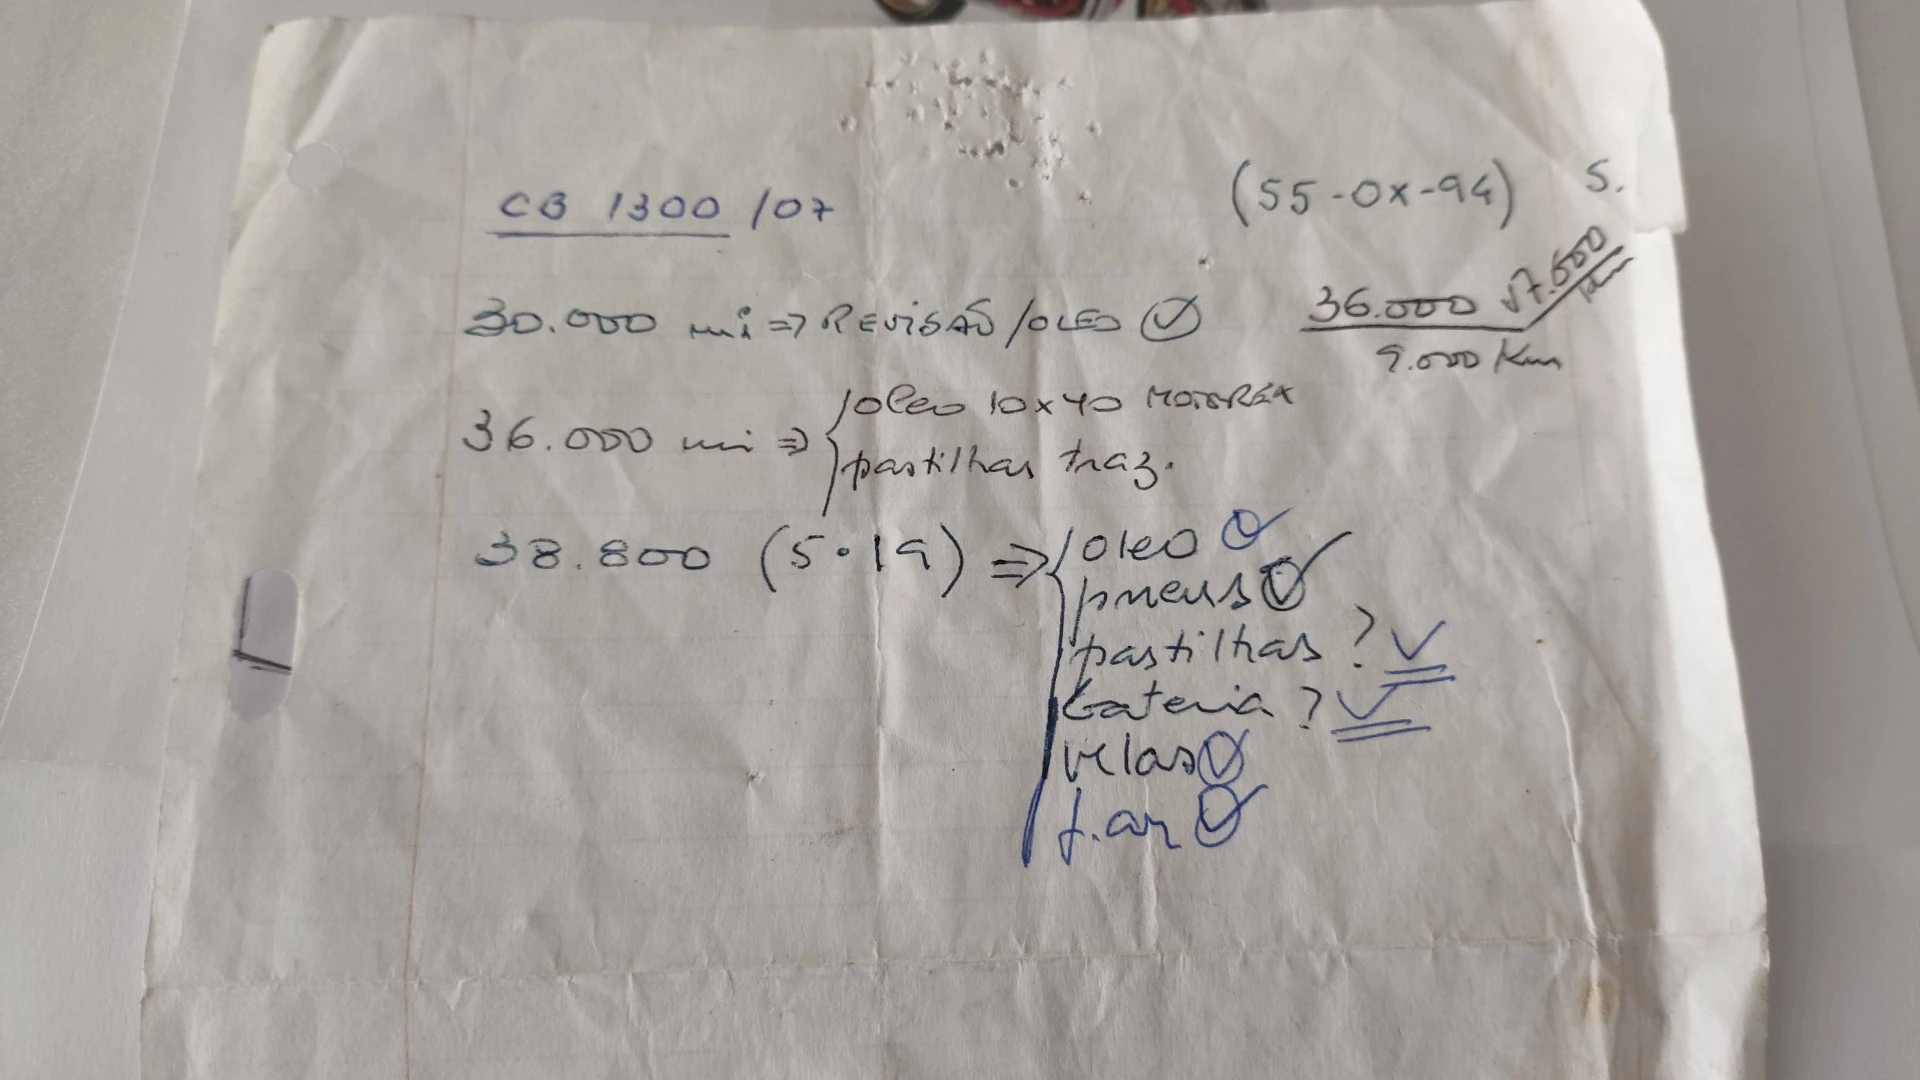 CB 1300 /07
(55-0x-94) S.
30.000 mi => REVISÃO /OLEO
36.000
9.000 Km
36.000 mi => oleo 10x40 MOTOREX
pastilhas traz.
38.800 (5.19) => oleo
pneus
pastilhas ?
bateria ?
velas
f.ar